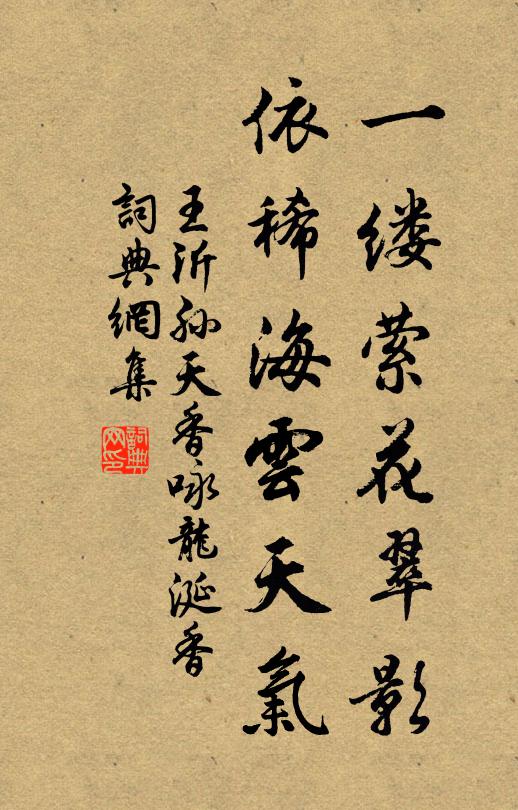 一缕萦花翠影
依稀海雲天氣
王沂孙天香咏龍涎香
詞典網集
詞典
网印